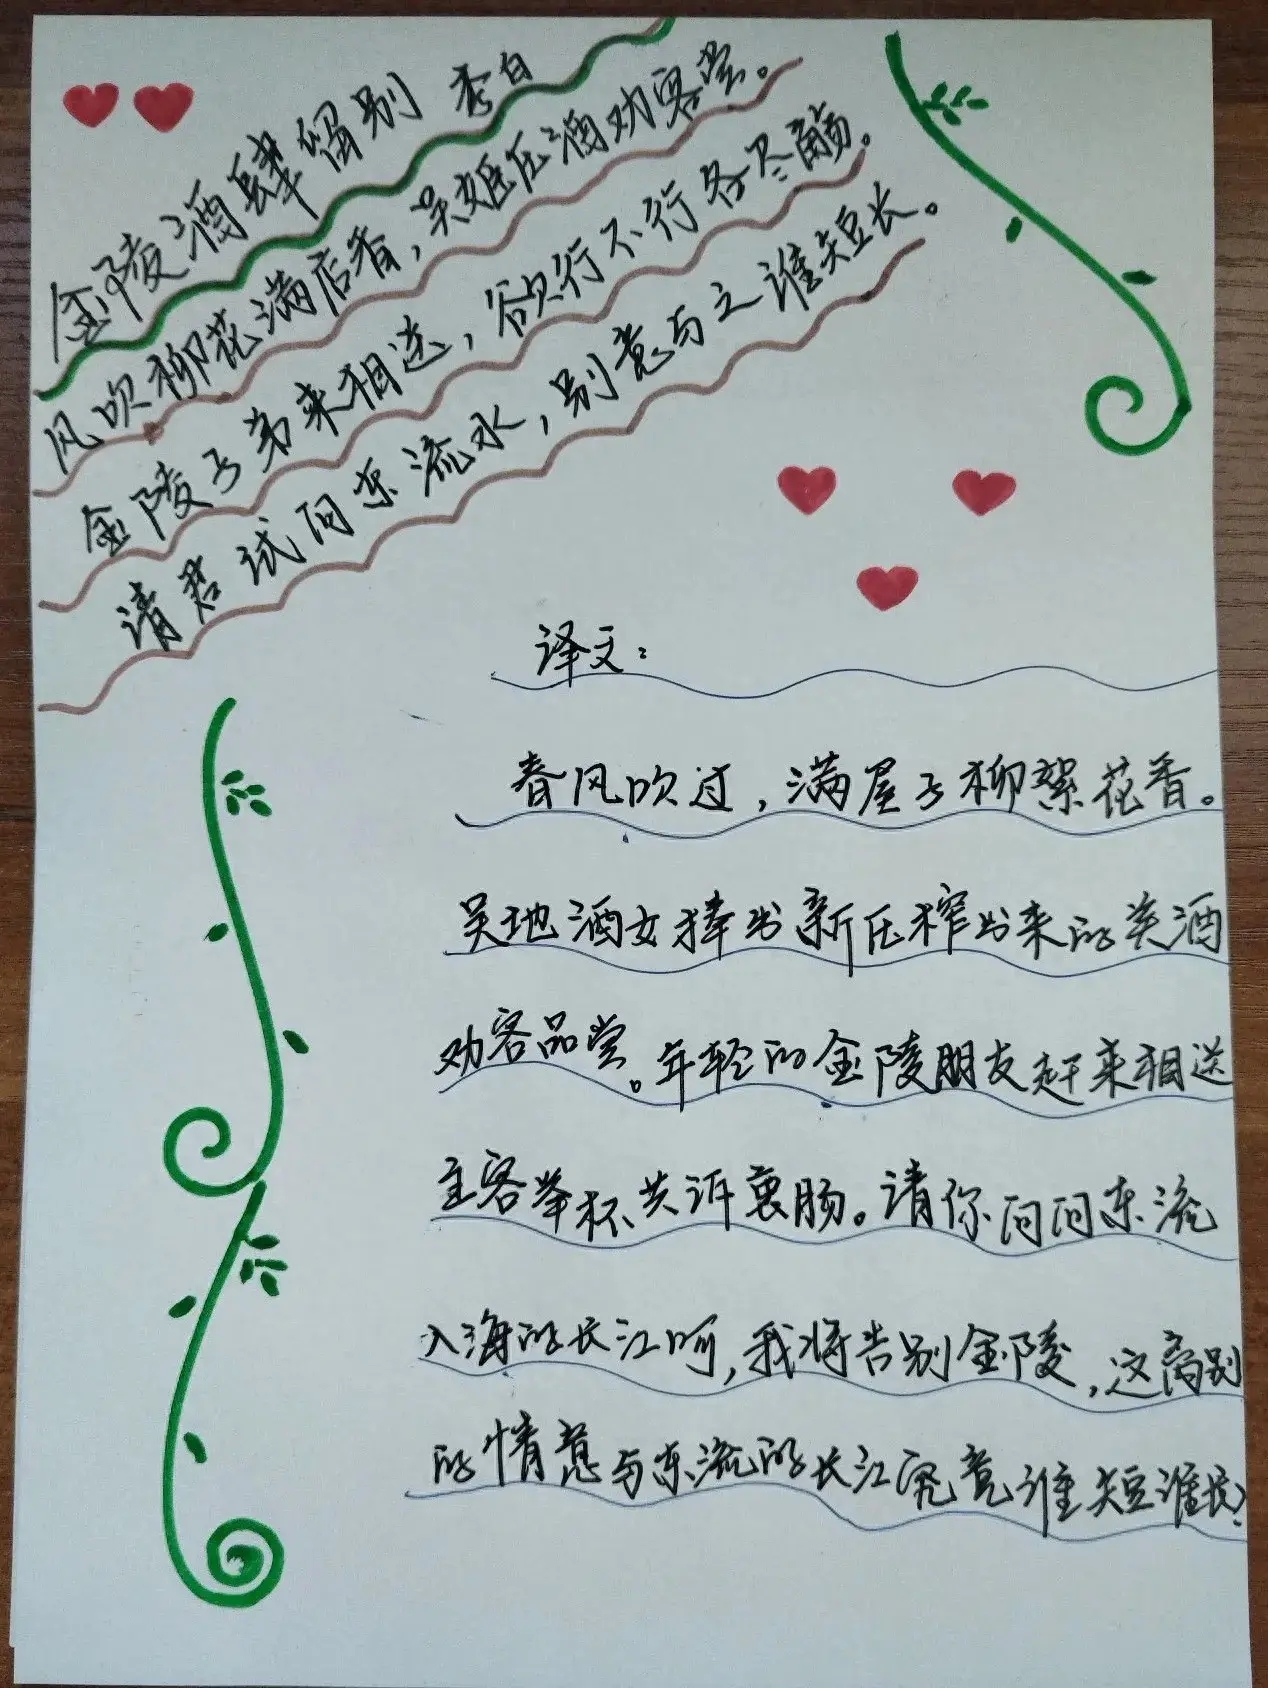 金陵酒肆留别 李白
风吹柳花满店香，吴姬压酒劝客尝。
金陵子弟来相送，欲行不行各尽觞。
请君试问东流水，别意与之谁短长。
译文：
春风吹过，满屋子柳絮花香。
吴地酒女捧出新压榨出来的美酒
劝客品尝。年轻的金陵朋友赶来相送
主客举杯共诉衷肠。请你问问东流
入海的长江呵，我将告别金陵，这离别
的情意与东流的长江究竟谁短谁长？